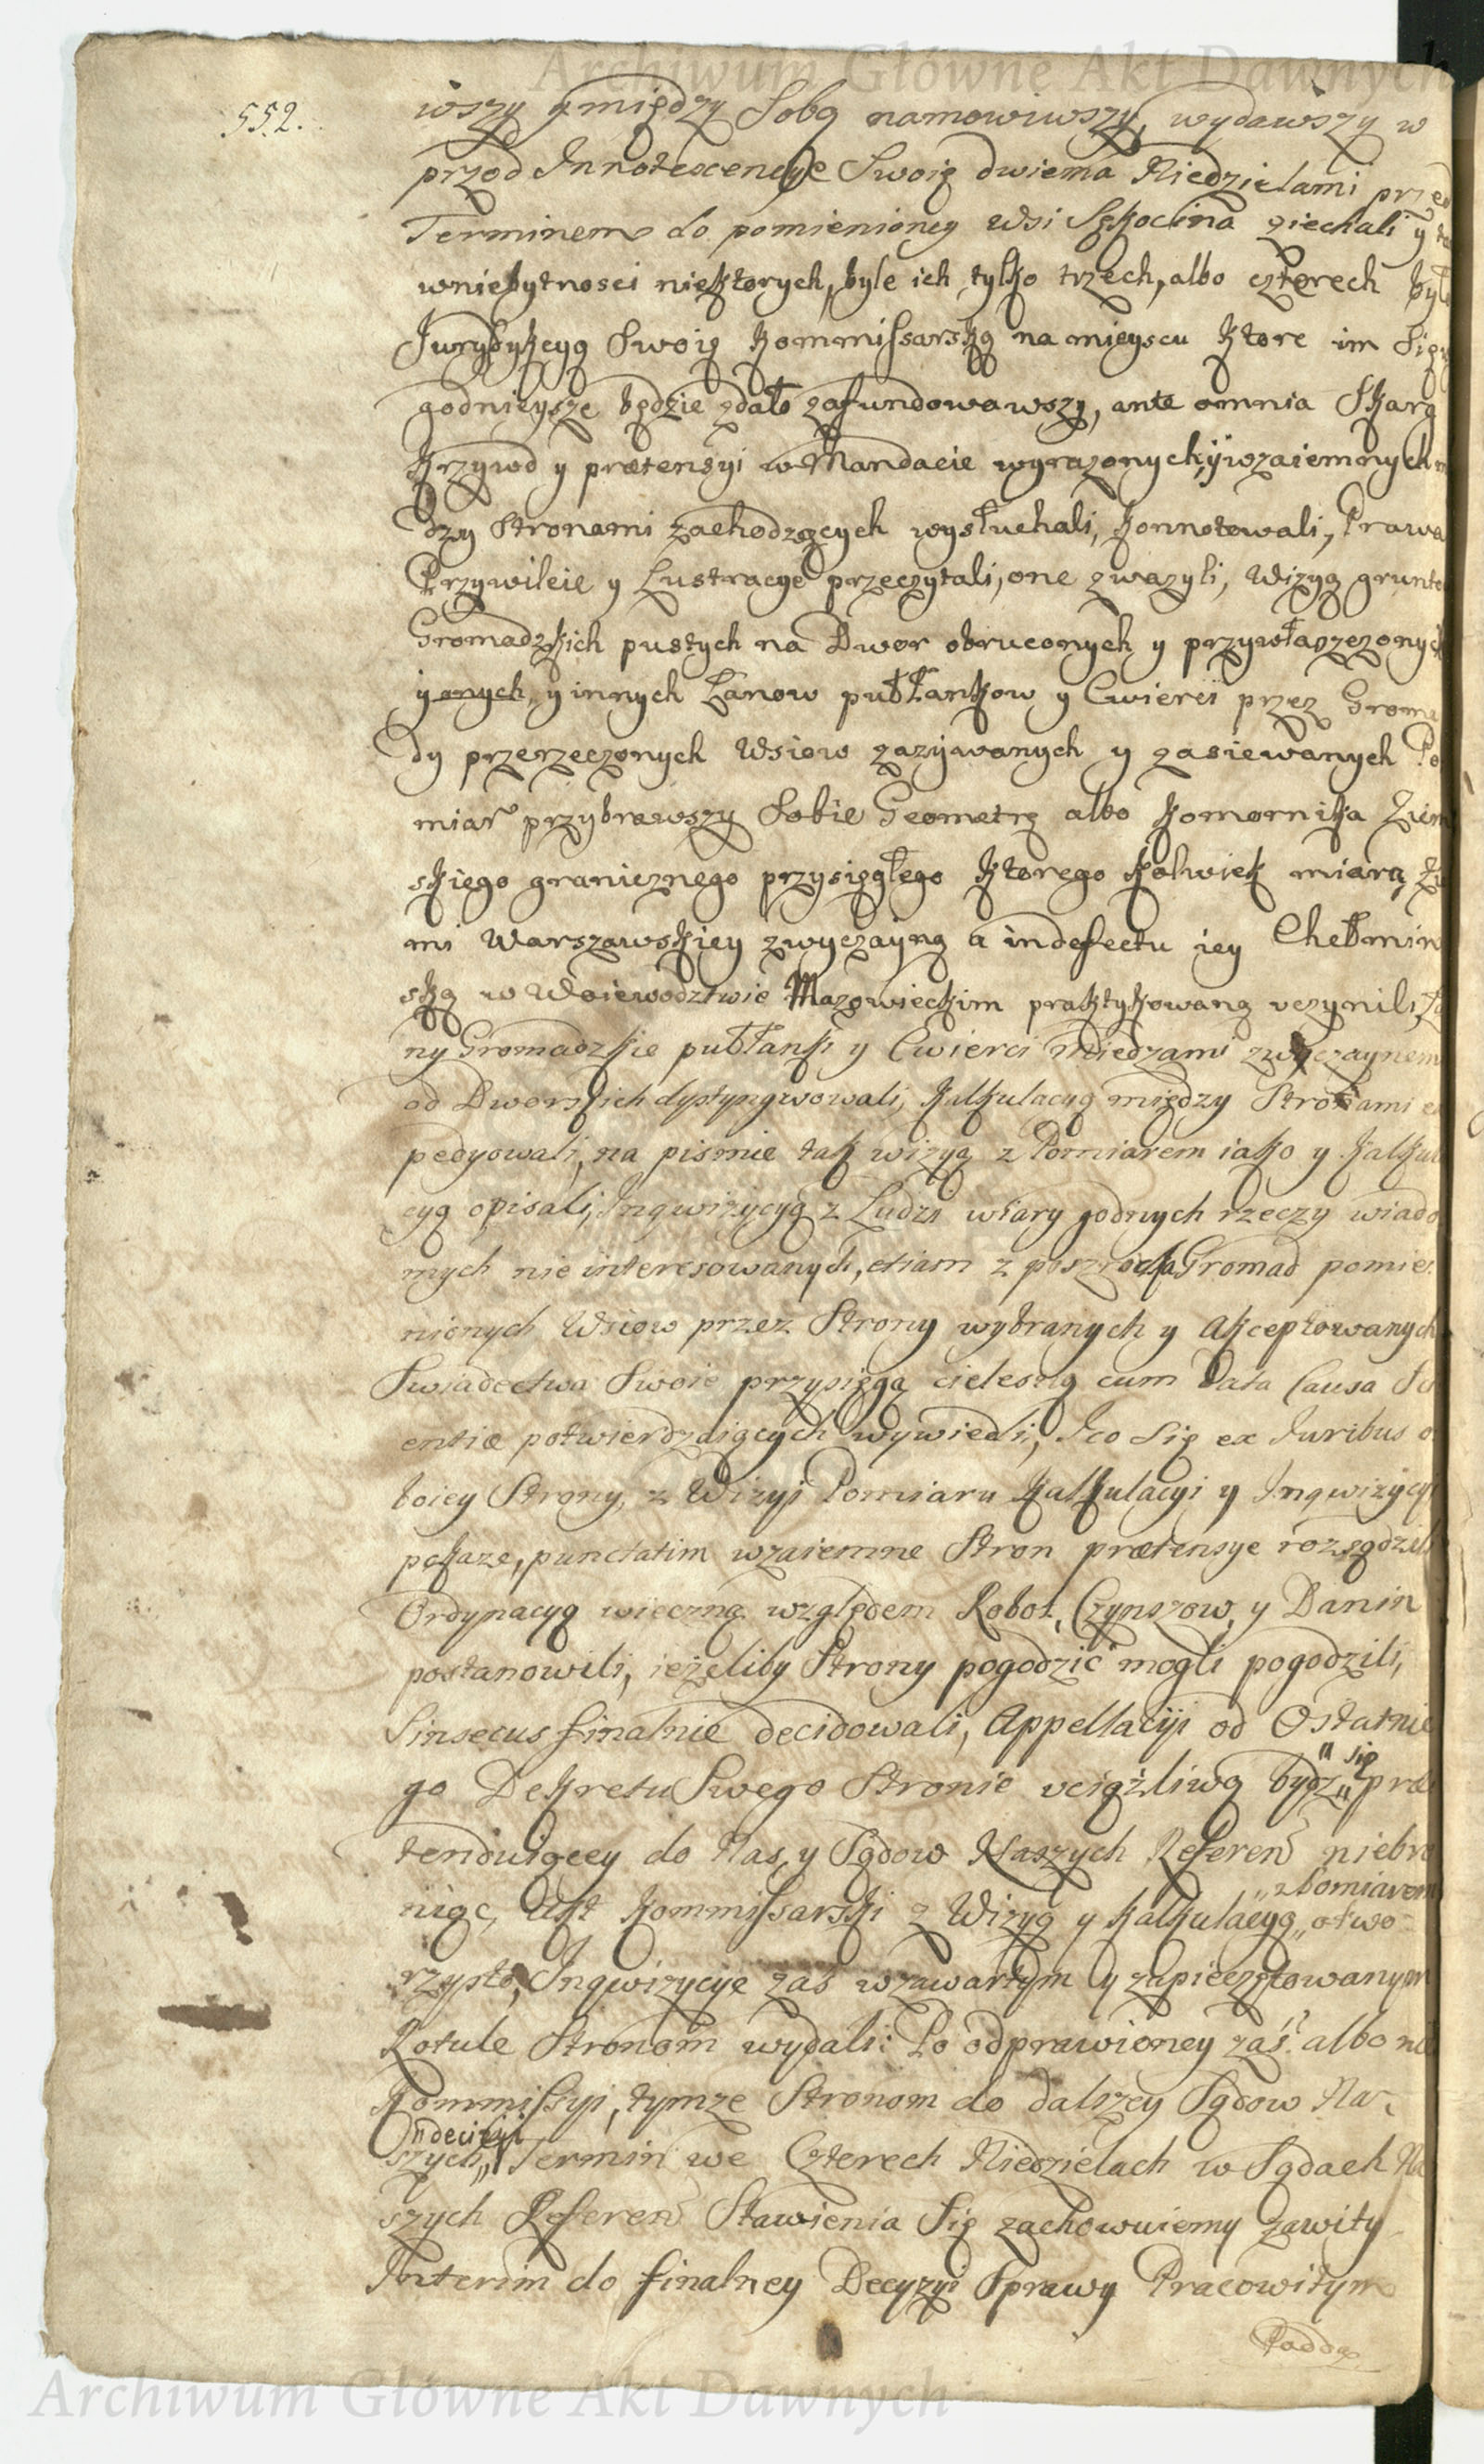 Archiwum Główne Akt Dawnych
552.
wszy y między Sobą namowiwszy, wydawszy w
przod Innotescencye Swoię dwiema Niedzielami przed
Terminem do pomienioney Wsi Sękocina ziechali y
wniebytnosci niektorych, byle ich tylko trzech, albo czterech
Jurysdykcyą Swoię Kommissarską na mieyscu ktore im Się
godnieysze będzie zdało zafundowawszy, ante omnia Skarg
Krzywd y prætensyi w Mandacie wyrazonych, y wzaiemnych
dzy Stronami zachodzących wysłuchali, konnotowali, Prawa
Przywileie y Lustracye przeczytali, one zwazyli, Wizyą grunto
Gromadzkich pustych na Dwor obruconych y przywłaszczonych
y onych, y innych Łanow pułłankow y Cwierci przez Groma
dy przerzeczonych Wsiow zazywanych y zasiewanych Po
miar przybrawszy Sobie Geometrę albo Komornika Ziem
skiego granicznego przysięgłego ktorego kolwiek miarą
mi Warszawskiey zwyczayną a in defectu iey Chełmin
ską w Woiewodztwie Mazowieckim praktykowaną uczynili,
ny Gromadzkie pułłanki y Cwierci Miedzami zwyczaynemi
od Dworskich dystyngwowali, kalkulacyą między Stronami
pedyowali, na pismie tak wizyą z Pomiarem iako y kalkula
cyą opisali, Inqwizycyą z Ludzi wiary godnych rzeczy wiado
mych nie interesowanych, etiam z poszrodka Gromad pomie
nionych Wsiow przez Strony wybranych y akceptowanych
Swiadectwa Swoie przysięgą cielesną cum Data Causa Sci
entiæ potwierdzaiących wywiedli, Ico Się ex Juribus o
boiey Strony, z Wizyi Pomiaru Kalkulacyi y Inqwizycyi
pokaze, punctatim wzaiemne Stron prætensye rozsądzili
Ordynacyą wieczną względem Robot, Czynszow, y Danin
postanowili, ieżeliby Strony pogodzić mogli pogodzili,
Sinsecus finalnie decidowali, Appellacyi od Ostatnie
go Dekretu Swego Stronie uciążliwą bydz „ się præ
tenduiącey do Nas y Sądow Naszych Referen niebro
niąc, Akt Kommissarski z Wizyą y kalkulacyą „ z Pomiarem otwo
rzysto, Inqwizycye zas wzawartym y zapieczętowanym
Rotule Stronom wydali: Po odprawioney zaś albo nie
Kommissyi, tymze Stronom do dalszey Sądow Na
szych „ decisyi Termin we Czterech Niedzielach w Sądach Na
szych Referen Stawienia Się zachowuiemy zawity
Interim do finalney Decyzyi Sprawy Pracowitym
Poddą
Archiwum Główne Akt Dawnych